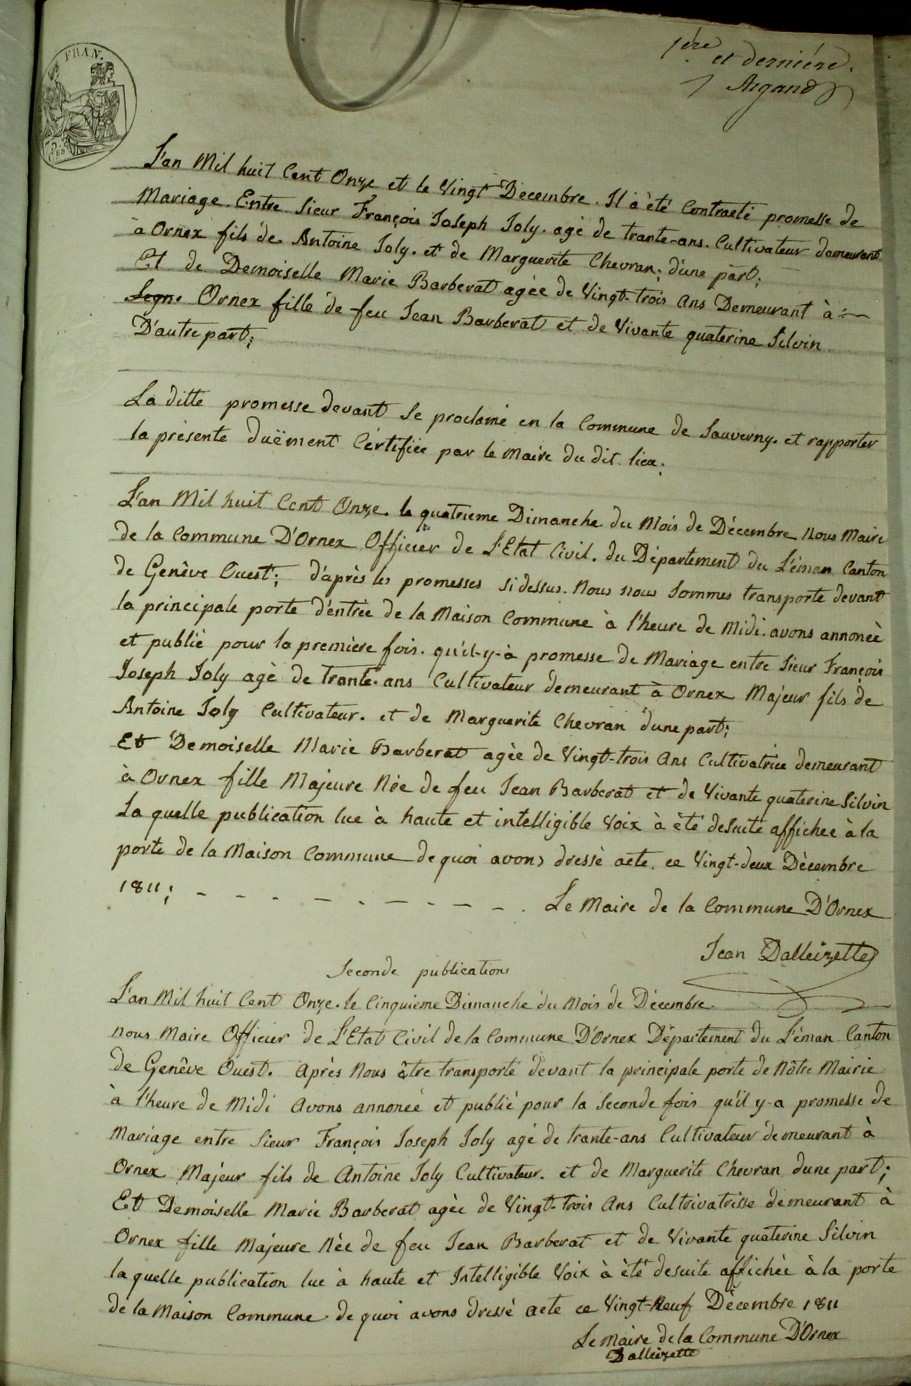 FRAN.
1ère et dernière.
Argand
L'an Mil huit Cent Onze et le Vingt Décembre. Il à été Contracté promesse de
Mariage. Entre Sieur François Joseph Joly. agé de trante-ans. Cultivateur demeurant
à Ornex fils de Antoine Joly. et de Marguerite Chevran. d'une part;
Et de Demoiselle Marie Barberat agée de Vingt-trois Ans Demeurant à
Ornex fille de feu Jean Barberat et de Vivante quaterine Silvin
D'autre part;
La ditte promesse devant Se proclamé en la Commune de Sauverny. et rapporter
la présente duëment Certifiée par le Maire du dit lieu.
L'an Mil huit Cent Onze. le quatrieme Dimanche du Mois de Décembre Nous Maire
de la Commune D'Ornex Officier de L'Etat Civil. du Département du Léman Canton
de Genêve Ouest; d'après les promesses si dessus. Nous nous Sommes transporte devant
la principale porte d'entrée de la Maison Commune à l'heure de Midi. avons annoncè
et publié pour la premiere fois. qu'il-y-à promesse de Mariage entre Sieur François
Joseph Joly agè de trante-ans Cultivateur demeurant à Ornex Majeur fils de
Antoine Joly Cultivateur. et de Marguerite Chevran d'une part;
Et Demoiselle Marie Barberat agèe de Vingt-trois Ans Cultivatrice demeurant
à Ornex fille Majeure Nèe de feu Jean Barberat et de Vivante quaterine Silvin
La quelle publication lue à haute et intelligible Voix à été desuite affichee à la
porte de la Maison Commune de quoi avons dressè acte. ce Vingt-deux Dècembre
1811; - - - - - - - - . Le Maire de la Commune D'Ornex
Jean Dalleizette
Seconde publications
L'an Mil huit Cent Onze. le Cinquieme Dimanche du Mois de Décembre
nous Maire Officier de L'Etat Civil de la Commune D'Ornex Département du Léman Canton
de Genêve Ouest. Après Nous être transporté devant la principale porte de Nôtre Mairie
à l'heure de Midi Avons annoncé et publié pour la Seconde fois qu'il y-a promesse de
Mariage entre Sieur François Joseph Joly agé de trante-ans Cultivateur demeurant à
Ornex Majeur fils de Antoine Joly Cultivateur. et de Marguerite Chevran dune part;
Et Demoiselle Marie Barberat agèe de Vingt-trois Ans Cultrivatrisse demeurant à
Ornex fille Majeure Nèe de feu Jean Barberat et de Vivante quaterine Silvin
la quelle publication lue à haute et Intelligible Voix à été desuite affichèe à la porte
de la Maison Commune de quoi avons dressé acte ce Vingt-Neuf Décembre 1811
Le Maire de la Commune D'Ornex
Dalleizette